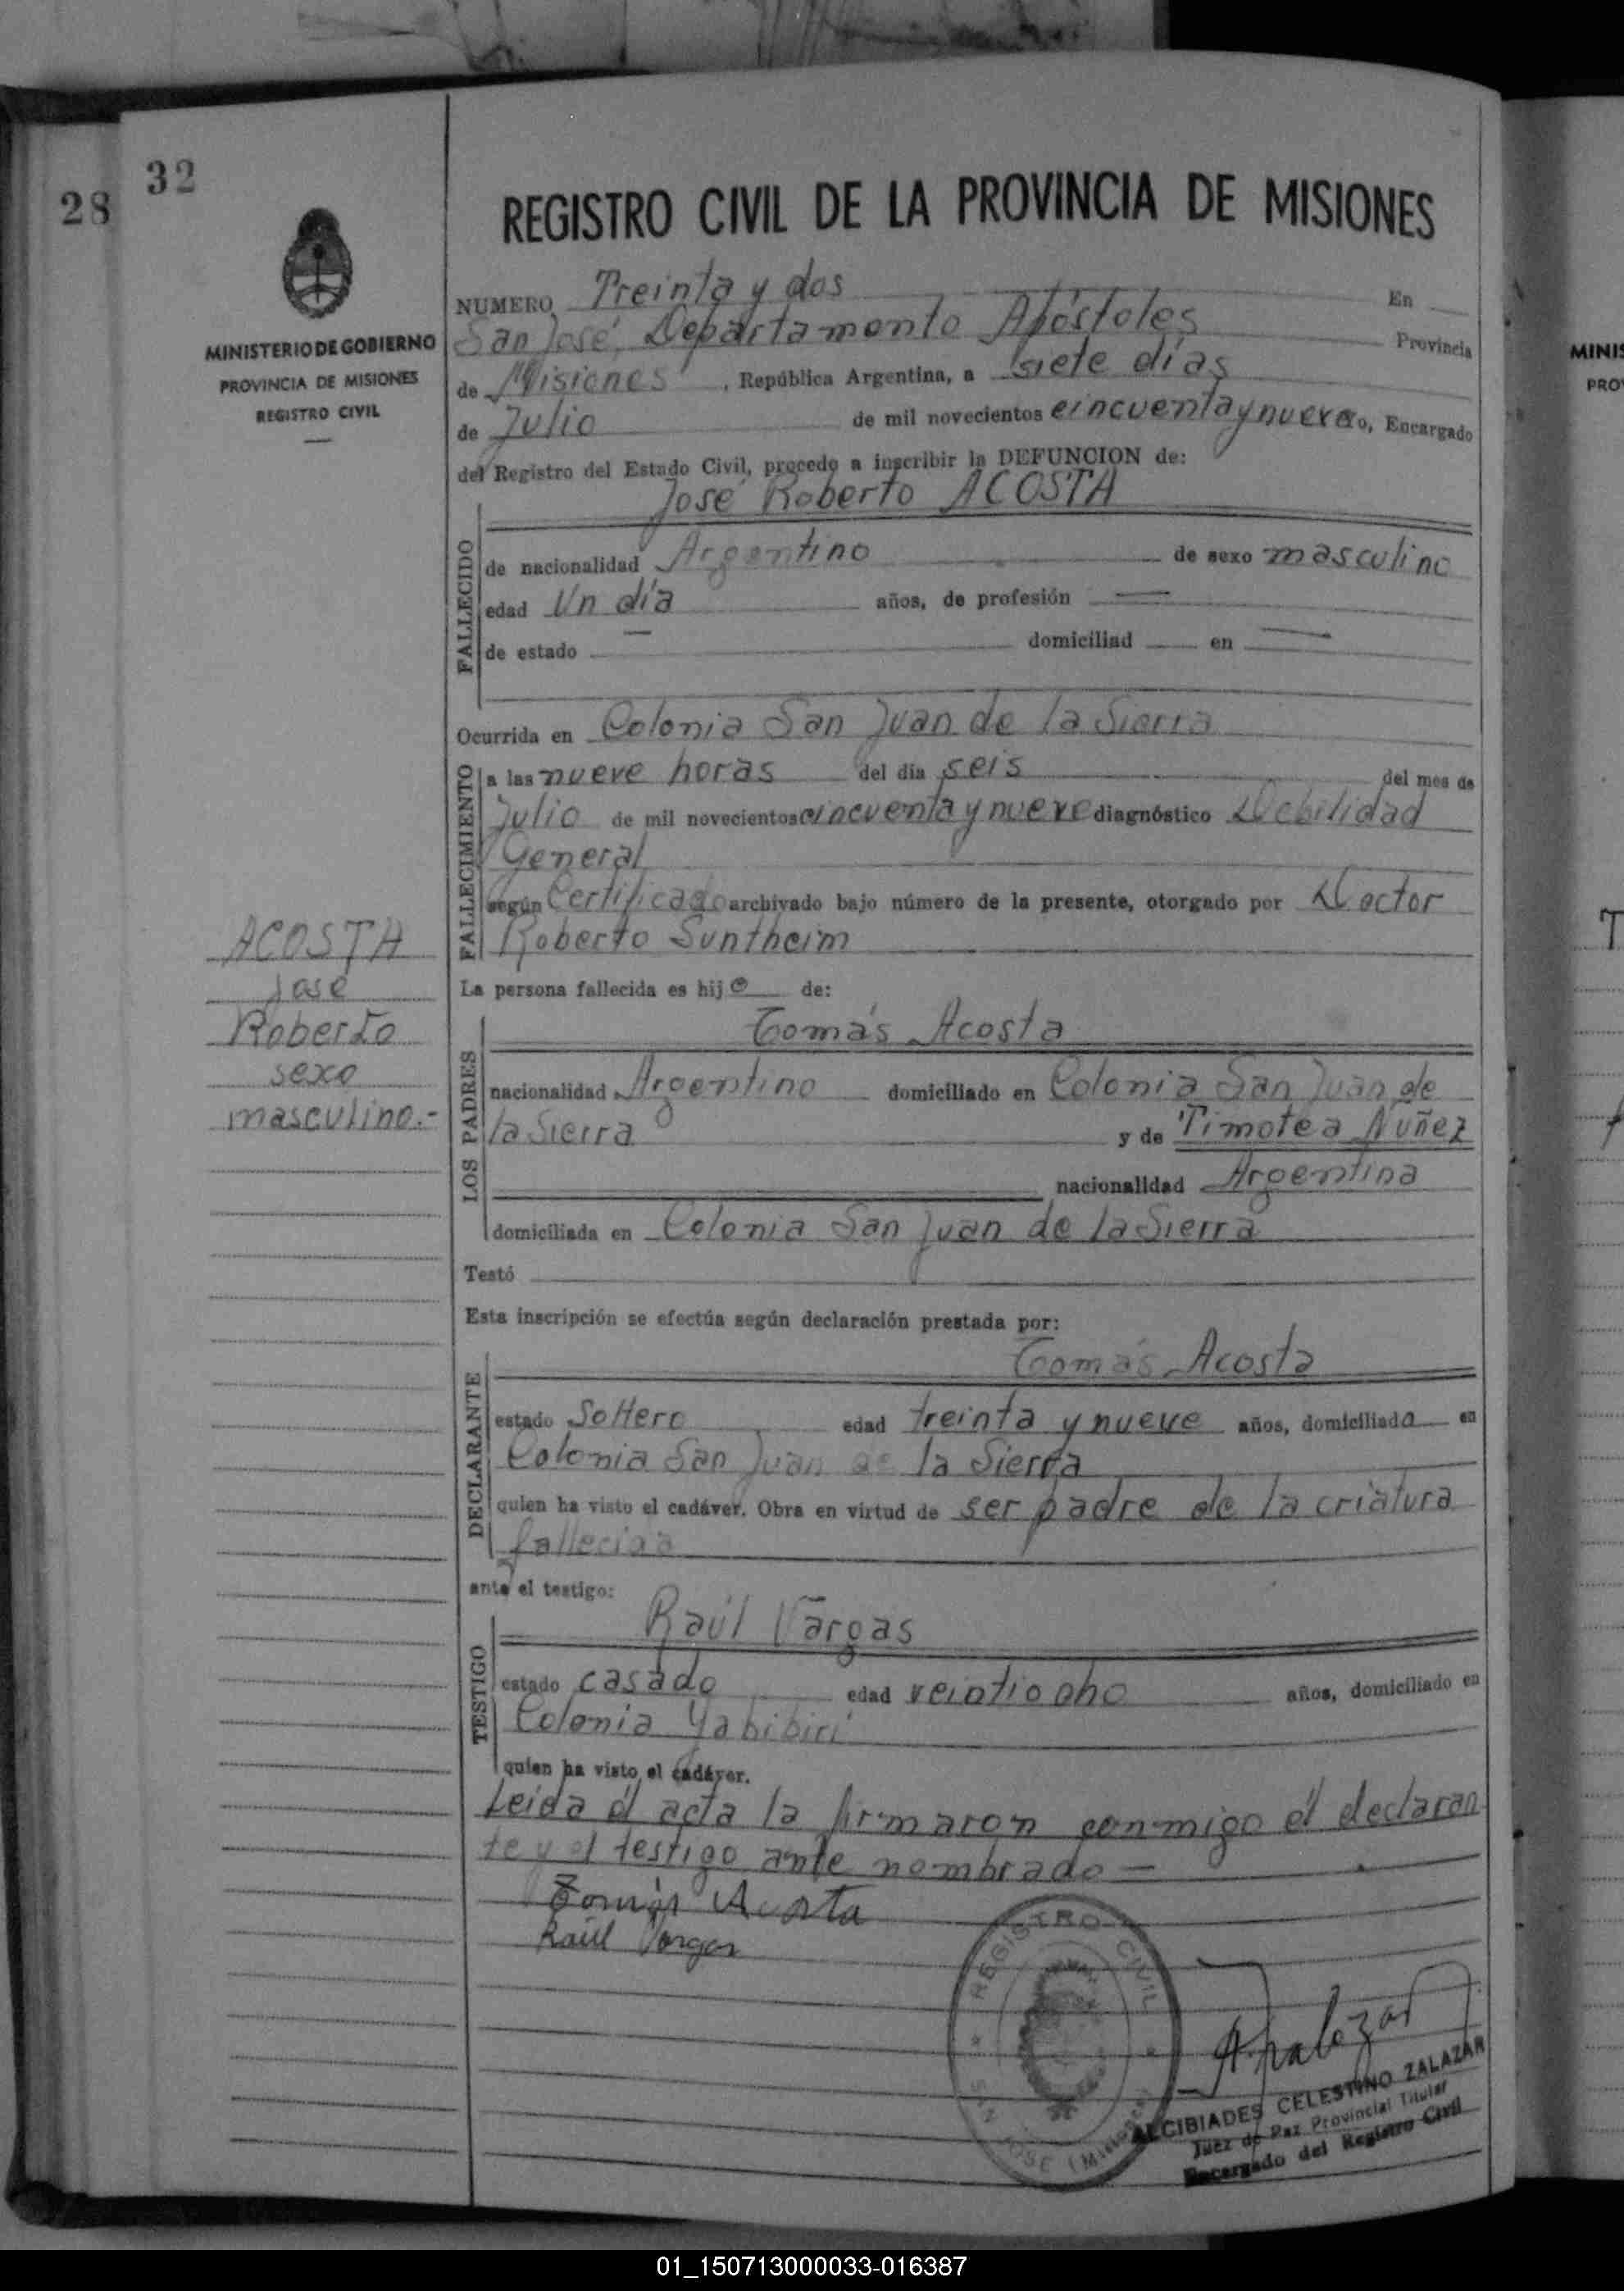 28
32
MINISTERIO DE GOBIERNO
PROVINCIA DE MISIONES
REGISTRO CIVIL
ACOSTA
José
Roberto
sexo
masculino.-
REGISTRO CIVIL DE LA PROVINCIA DE MISIONES
NUMERO Treinta y dos En
San José, Departamento Apóstoles Provincia
de Misiones, República Argentina, a siete días
de Julio de mil novecientos cincuenta y nueve o, Encargado
del Registro del Estado Civil, procedo a inscribir la DEFUNCION de:
José Roberto ACOSTA
FALLECIDO
de nacionalidad Argentino de sexo masculino
edad Un día años, de profesión —
de estado — domiciliad — en —
Ocurrida en Colonia San Juan de la Sierra
FALLECIMIENTO
a las nueve horas del día seis del mes de
Julio de mil novecientos cincuenta y nueve diagnóstico Debilidad
General
según Certificado archivado bajo número de la presente, otorgado por Doctor
Roberto Suntheim
La persona fallecida es hijo de:
LOS PADRES
Tomás Acosta
nacionalidad Argentino domiciliado en Colonia San Juan de
la Sierra y de Timotea Núñez
nacionalidad Argentina
domiciliada en Colonia San Juan de la Sierra
Testó
Esta inscripción se efectúa según declaración prestada por:
DECLARANTE
Tomás Acosta
estado Soltero edad treinta y nueve años, domiciliado en
Colonia San Juan de la Sierra
quien ha visto el cadáver. Obra en virtud de ser padre de la criatura
fallecida
ante el testigo:
TESTIGO
Raúl Vargas
estado casado edad veintiocho años, domiciliado en
Colonia Yabibirí
quien ha visto el cadáver.
Leída él acta la firmaron conmigo él declaran
te y el testigo ante nombrado —
Tomás Acosta
Raúl Vargas
REGISTRO CIVIL
SAN JOSE (Misiones)
ALCIBIADES CELESTINO ZALAZAR
Juez de Paz Provincial Titular
Encargado del Registro Civil
MINIS
PRO
T
01_150713000033-016387